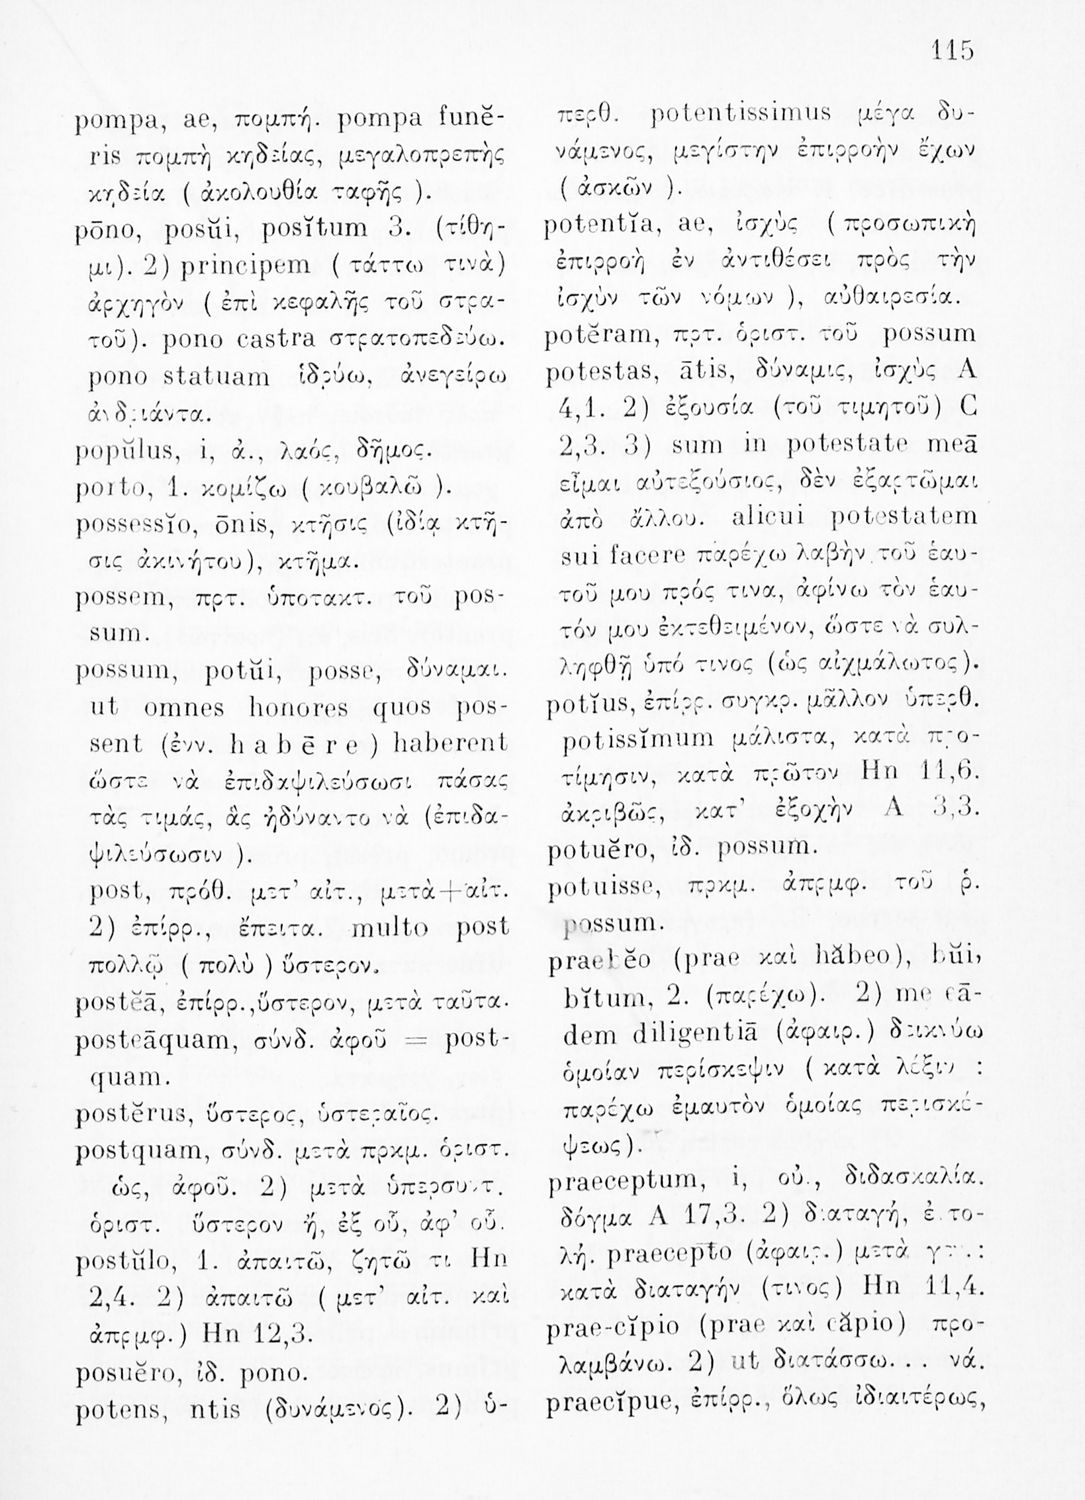 115
pompa, ae, πομπή. pompa funĕ-
ris πομπὴ κηδείας, μεγαλοπρεπὴς
κηδεία ( ἀκολουθία ταφῆς ).
pōno, posŭi, posĭtum 3. (τίθη-
μι). 2) principem ( τάττω τινὰ)
ἀρχηγὸν ( ἐπὶ κεφαλῆς τοῦ στρα-
τοῦ). pono castra στρατοπεδεύω.
pono statuam ἱδρύω, ἀνεγείρω
ἀνδριάντα.
popŭlus, i, ἀ., λαός, δῆμος.
porto, 1. κομίζω ( κουβαλῶ ).
possessĭo, ōnis, κτῆσις (ἰδίᾳ κτῆ-
σις ἀκινήτου), κτῆμα.
possem, πρτ. ὑποτακτ. τοῦ pos-
sum.
possum, potŭi, posse, δύναμαι.
ut omnes honores quos pos-
sent (ἐνν. habēre) haberent
ὥστε νὰ ἐπιδαψιλεύσωσι πάσας
τὰς τιμάς, ἃς ἠδύναντο νὰ (ἐπιδα-
ψιλεύσωσιν ).
post, πρόθ. μετ' αἰτ., μετὰ+αἰτ.
2) ἐπίρρ., ἔπειτα. multo post
πολλῷ ( πολὺ ) ὕστερον.
postĕā, ἐπίρρ.,ὕστερον, μετὰ ταῦτα.
posteāquam, σύνδ. ἀφοῦ = post-
quam.
postĕrus, ὕστερος, ὑστεραῖος.
postquam, σύνδ. μετὰ πρκμ. ὁριστ.
ὡς, ἀφοῦ. 2) μετὰ ὑπερσυντ.
ὁριστ. ὕστερον ἤ, ἐξ οὗ, ἀφ' οὗ.
postŭlo, 1. ἀπαιτῶ, ζητῶ τι Hn
2,4. 2) ἀπαιτῶ ( μετ' αἰτ. καὶ
ἀπρμφ.) Hn 12,3.
posuĕro, ἰδ. pono.
potens, ntis (δυνάμενος). 2) ὑ-
περθ. potentissimus μέγα δυ-
νάμενος, μεγίστην ἐπιρροὴν ἔχων
( ἀσκῶν ).
potentĭa, ae, ἰσχὺς ( προσωπικὴ
ἐπιρροὴ ἐν ἀντιθέσει πρὸς τὴν
ἰσχὺν τῶν νόμων ), αὐθαιρεσία.
potĕram, πρτ. ὁριστ. τοῦ possum
potestas, ātis, δύναμις, ἰσχὺς A
4,1. 2) ἐξουσία (τοῦ τιμητοῦ) C
2,3. 3) sum in potestate meā
εἶμαι αὐτεξούσιος, δὲν ἐξαρτῶμαι
ἀπὸ ἄλλου. alicui potestatem
sui facere παρέχω λαβὴν τοῦ ἑαυ-
τοῦ μου πρός τινα, ἀφίνω τὸν ἑαυ-
τόν μου ἐκτεθειμένον, ὥστε νὰ συλ-
ληφθῇ ὑπό τινος (ὡς αἰχμάλωτος).
potĭus, ἐπίρρ. συγκρ. μᾶλλον ὑπερθ.
potissĭmum μάλιστα, κατὰ προ-
τίμησιν, κατὰ πρῶτον Hn 11,6.
ἀκριβῶς, κατ' ἐξοχὴν A 3,3.
potuĕro, ἰδ. possum.
potuisse, πρκμ. ἀπρμφ. τοῦ ῥ.
possum.
praebĕo (prae καὶ hăbeo), bŭi,
bĭtum, 2. (παρέχω). 2) me eā-
dem diligentiā (ἀφαιρ.) δεικνύω
ὁμοίαν περίσκεψιν ( κατὰ λέξιν :
παρέχω ἐμαυτὸν ὁμοίας περισκέ-
ψεως).
praeceptum, i, οὐ., διδασκαλία.
δόγμα A 17,3. 2) διαταγή, ἐντο-
λή. praecepto (ἀφαιρ.) μετὰ γεν.:
κατὰ διαταγήν (τινος) Hn 11,4.
prae-cĭpio (prae καὶ căpio) προ-
λαμβάνω. 2) ut διατάσσω. . . νά.
praecĭpue, ἐπίρρ., ὅλως ἰδιαιτέρως,